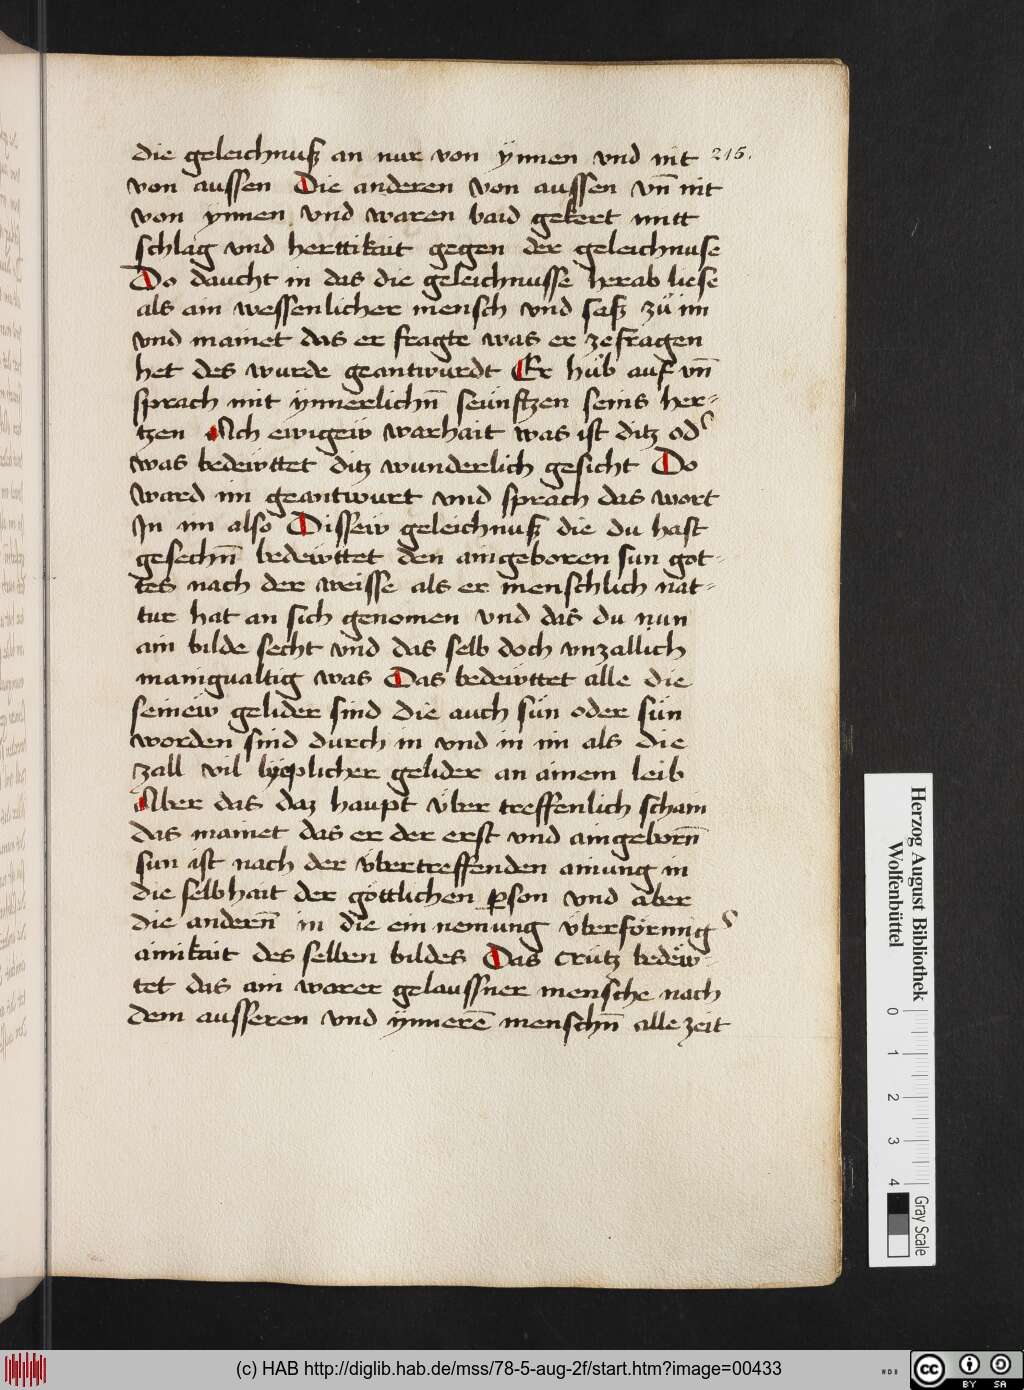 die geleichnuß an nur von ÿnnen vnd nit 215.
von aussen Die anderen von aussen vn̄ nit
von ynnen vnd waren baid gekert mitt
schlag vnd herttikait gegen der geleichnuse
Do daucht in das die geleichnusse herab liese
als ain wessenlicher mensch vnd saß zů im
vnd mainet das er fragte was er zefragen
het des wurde geantwurdt Er hůb auf vn̄
sprach mit ÿnnerlichn̄ seünftzen seins her-
tzen Ach ewigeiv warhait was ist ditz od
was bedeivttet ditz wunderlich gesicht Do
ward im geantwurt vnd sprach das wort
In im also Disseiv geleichnuß die du hast
gesechn̄ bedeivttet den aingeboren sun got-
tes nach der weisse als er menschlich nat-
tur hat an sich genomen vnd das du nun
ain bilde secht vnd das selb doch vnzallich
manigualtig was Das bedeivttet alle die
seineiv gelider sind die auch sün oder sün
worden sind durch in vnd in im als die
zall vil lyplicher gelider an ainem leib
Aber das daz haupt über treffenlich scham
das mainet das er der erst vnd aingeborn̄
sun ist nach der übertreffenden ainung in
die selbhait der göttlichen ꝑson vnd aber
die andern̄ in die ein nemung überförmig
ainikait des selben bildes Das crütz bedëiv-
tet das ain warer gelaussner mensche nach
dem ausseren vnd ÿnnerē menschn̄ alle zeit
Herzog August Bibliothek
Wolfenbüttel
0 1 2 3 4
Gray Scale
(c) HAB http://diglib.hab.de/mss/78-5-aug-2f/start.htm?image=00433
cc BY SA